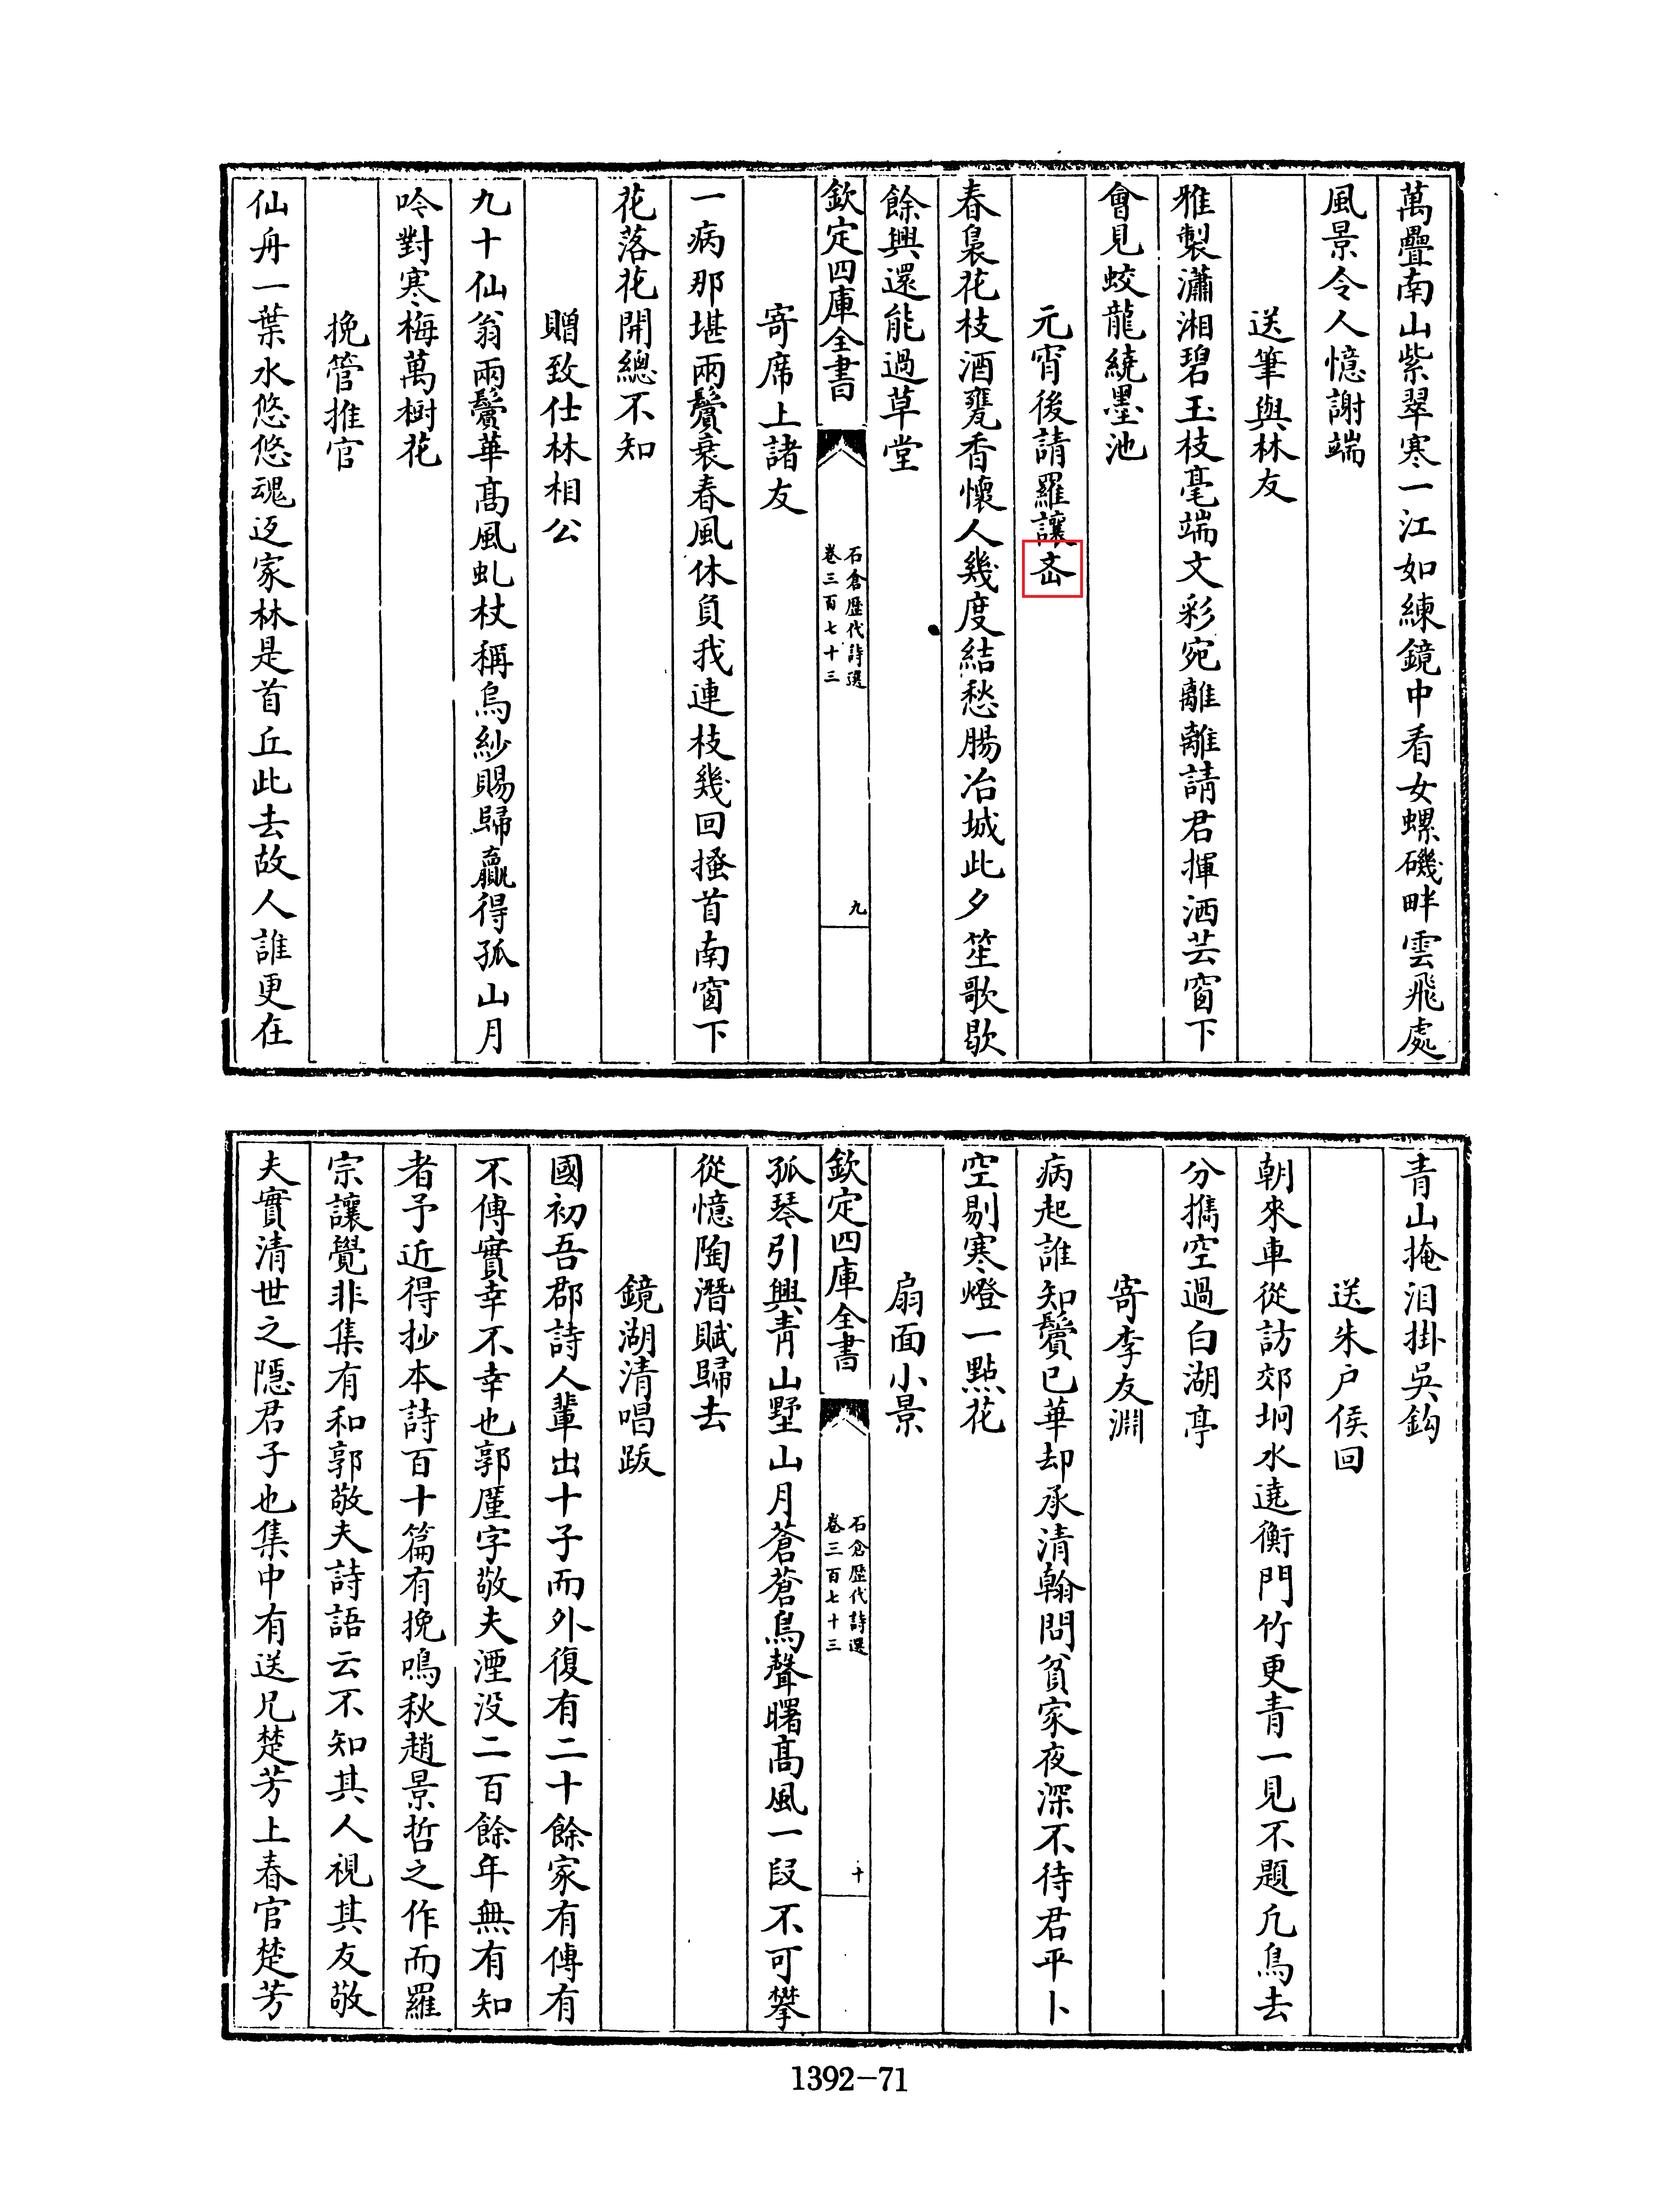 萬疊南山紫翠寒一江如練鏡中看女螺磯畔雲飛處
風景令人憶謝端
送筆與林友
雅製瀟湘碧玉枝毫端文彩宛離離請君揮洒芸窗下
會見蛟龍繞墨池
元宵後請羅讓
春裊花枝酒甕香懷人幾度結愁腸冶城此夕笙歌歇
餘興還能過草堂
欽定四庫全書
石倉歷代詩選
卷三百七十三
九
寄席上諸友
一病那堪兩鬢衰春風休負我連枝幾回搔首南窗下
花落花開總不知
贈致仕林相公
九十仙翁兩鬢華髙風虬杖稱烏紗賜歸贏得孤山月
吟對寒梅萬樹花
挽管推官
仙舟一葉水悠悠魂返家林是首丘此去故人誰更在
青山掩泪掛吳鈎
送朱户侯回
朝來車從訪郊坰水遶衡門竹更青一見不題凢鳥去
分攜空過白湖亭
寄李友淵
病起誰知鬢已華却承清翰問貧家夜深不待君平卜
空剔寒燈一點花
扇面小景
欽定四庫全書
石倉歷代詩選
卷三百七十三
十
孤琴引興青山墅山月蒼蒼鳥聲曙髙風一叚不可攀
從憶陶潛賦歸去
鏡湖清唱跋
國初吾郡詩人輩出十子而外復有二十餘家有傳有
不傳實幸不幸也郭厪字敬夫湮没二百餘年無有知
者予近得抄本詩百十篇有挽鳴秋趙景哲之作而羅
宗讓覺非集有和郭敬夫詩語云不知其人視其友敬
夫實清世之隱君子也集中有送兄楚芳上春官楚芳
1392-71